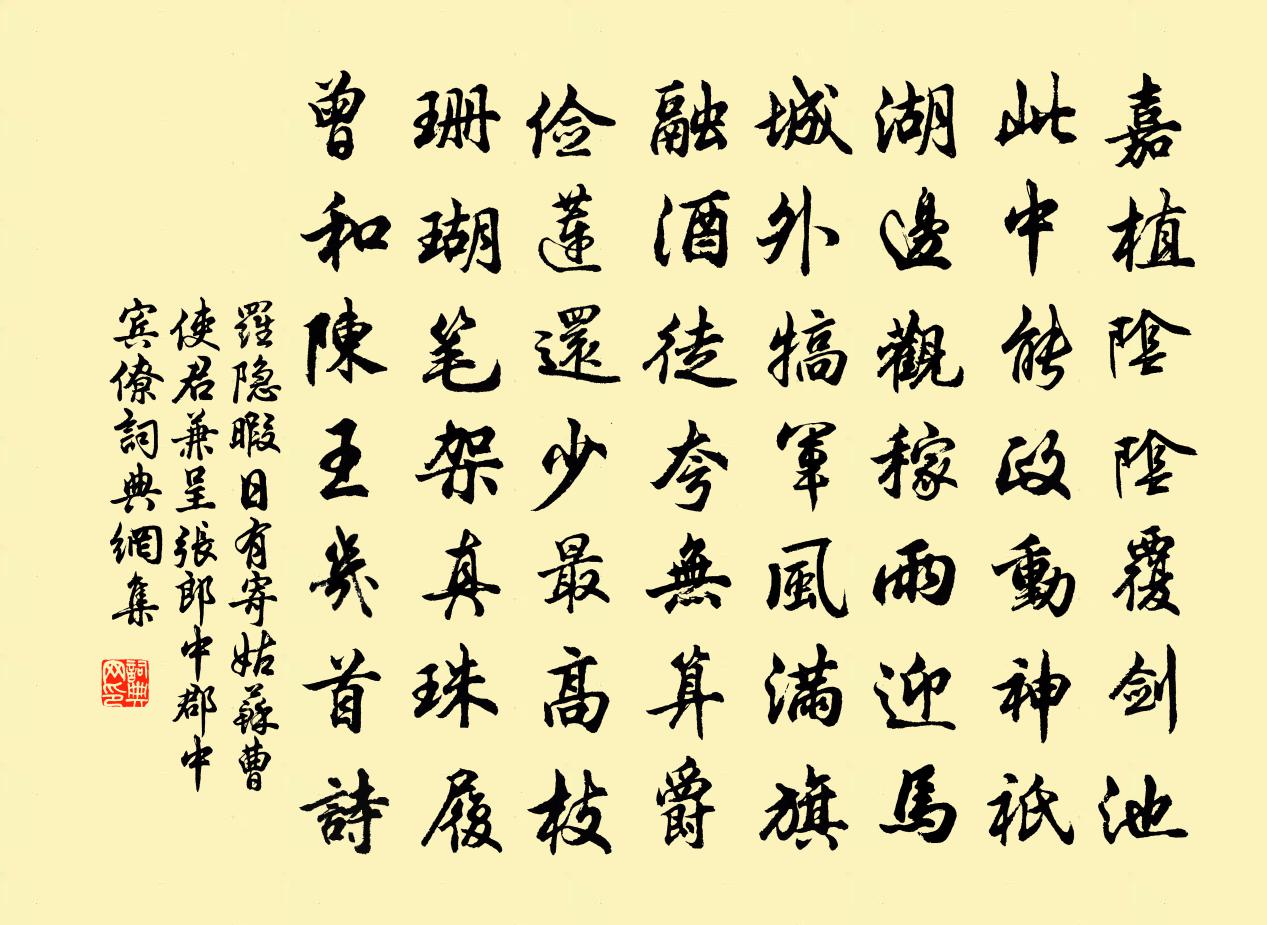 嘉植陰陰覆剑池
此中能政動神祇
湖邊觀稼雨迎馬
城外犒軍風满旗
融酒徒夸無算爵
俭蓮還少最高枝
珊瑚笔架真珠履
曾和陳王幾首詩
羅隐暇日有寄姑蘇曹
使君兼呈張郎中郡中
宾僚詞典網集
詞典网印